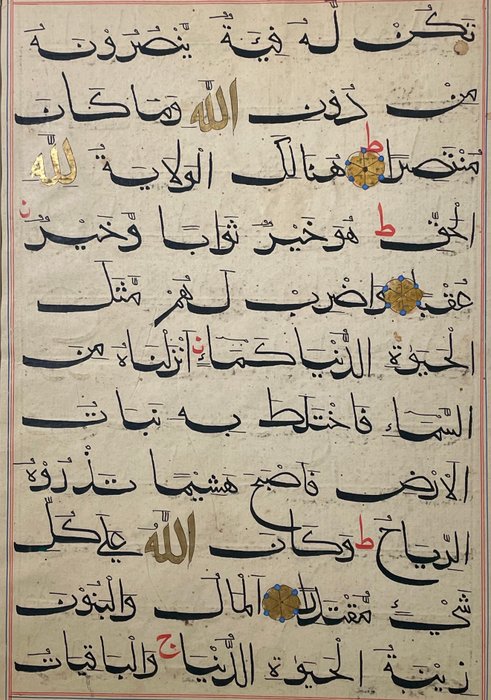 تَكُنْ لَهُ فِئَةٌ يَنْصُرُونَهُ
مِنْ دُونِ اللَّهِ وَمَا كَانَ
مُنْتَصِرًا ط هُنَالِكَ الْوَلَايَةُ لِلَّهِ
الْحَقِّ ط هُوَ خَيْرٌ ثَوَابًا وَّخَيْرٌ ن
عُقْبًا وَاضْرِبْ لَهُمْ مَثَلَ
الْحَيٰوةِ الدُّنْيَا كَمَاءٍ ن أَنْزَلْنَاهُ مِنَ
السَّمَاءِ فَاخْتَلَطَ بِهِ نَبَاتُ
الْأَرْضِ فَأَصْبَحَ هَشِيمًا تَذْرُوهُ
الرِّيَاحُ ط وَكَانَ اللَّهُ عَلَى كُلِّ
شَيْءٍ مُقْتَدِرًا الْمَالُ وَالْبَنُونَ
زِينَةُ الْحَيٰوةِ الدُّنْيَا ج وَالْبَاقِيَاتُ